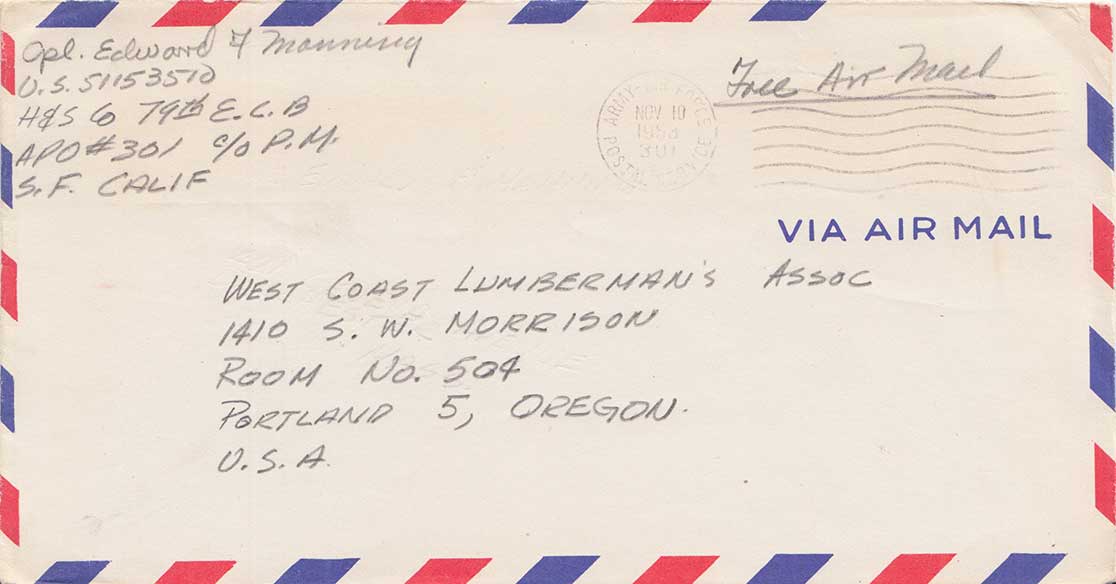 Cpl. Edward F Manning
U.S. 51153510
H&S Co 79th E.C.B
APO #301 c/o P.M.
S.F. CALIF
Free Air Mail
ARMY-AIR FORCE POSTAL SERVICE
NOV 10
1953
301
VIA AIR MAIL
WEST COAST LUMBERMAN'S ASSOC
1410 S.W. MORRISON
ROOM No. 504
PORTLAND 5, OREGON.
U.S.A.